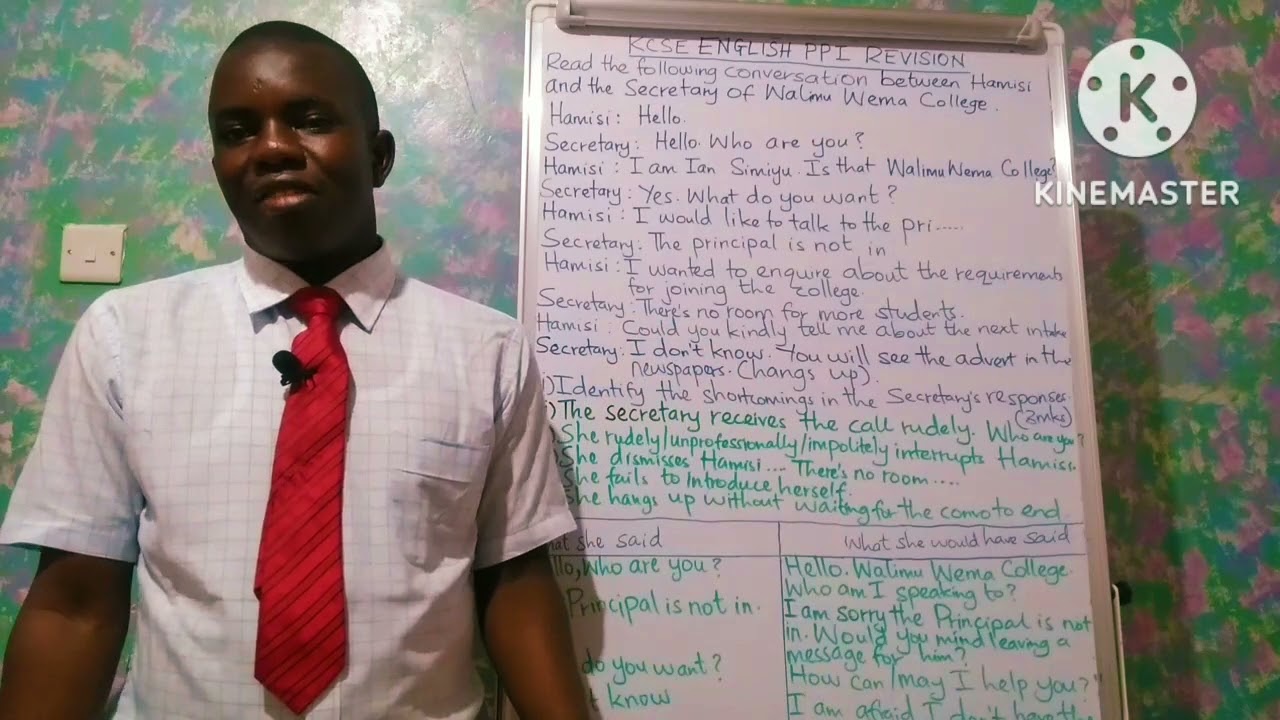 KCSE ENGLISH PP1 REVISION
Read the following conversation between Hamisi
and the Secretary of Walimu Wema College.
Hamisi: Hello.
Secretary: Hello. Who are you?
Hamisi: I am Ian Simiyu. Is that Walimu Wema College?
Secretary: Yes. What do you want?
Hamisi: I would like to talk to the pri.....
Secretary: The principal is not in
Hamisi: I wanted to enqure about the requirements
for joining the college.
Secretary: There's no room for more students.
Hamisi: Could you kindly tell me about the next intake
Secretary: I don't know. You will see the advert in the
newspapers. (hangs up).
i) Identify the shortcomings in the Secretary's responses.
(3mks)
i) The secretary receives the call rudely. Who are you?
She rudely/unprofessionally/impolitely interrupts Hamisi.
She dismisses Hamisi.... There's no room....
She fails to introduce herself.
She hangs up without waiting for the convo to end
she said
What she would have said
Who are you?
Hello. Walimu Wema College.
Who am I speaking to?
Principal is not in.
I am sorry the Principal is not
in. Would you mind leaving a
message for him?
do you want?
How can/may I help you?
know
I am afraid I don't have the
K
KINEMASTER